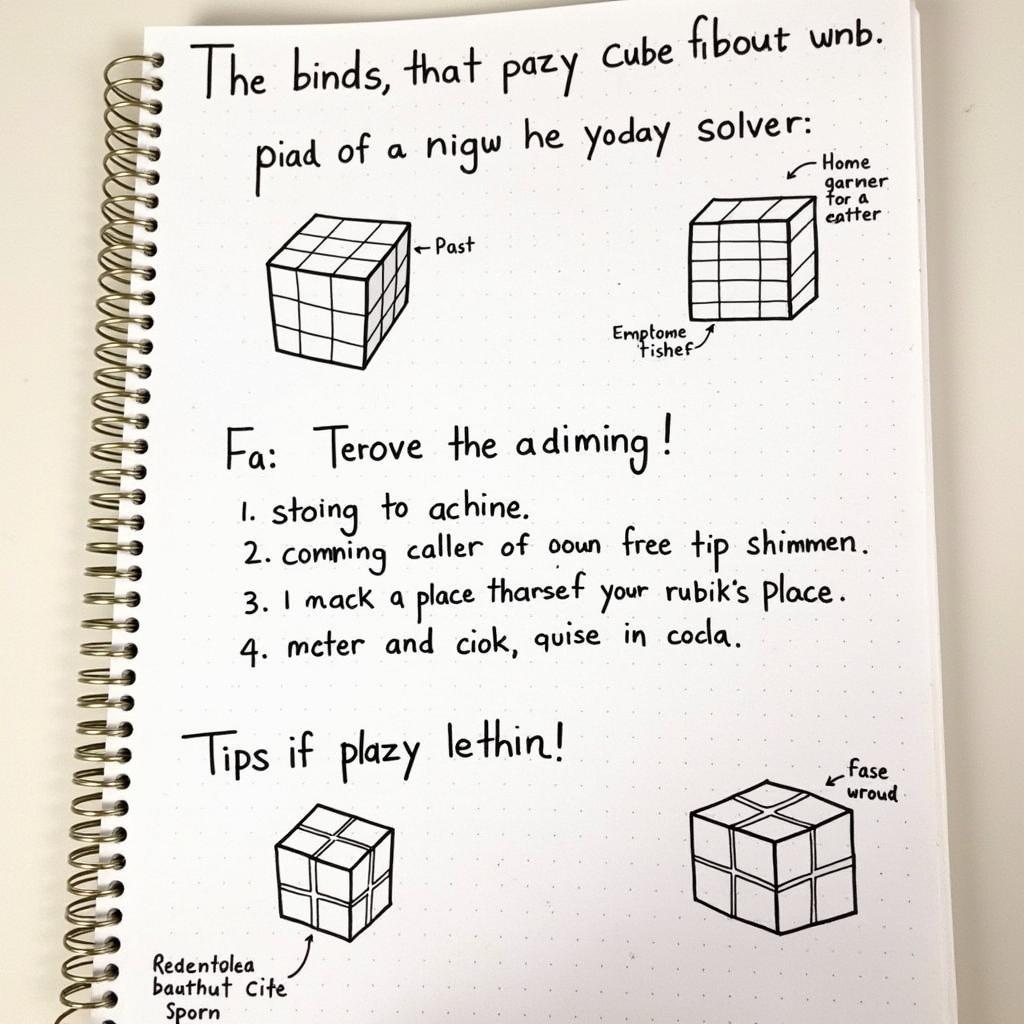 The binds, that pazy cube fibout wnb.
piad of a nigw he yoday solver:
Home
garner
for a
eatter
← Past
Emptome
tishef
Fa: Terove the adiming!
1. stoing to achine.
2. comning caller of ooun free tip shimmen.
3. I mack a place tharsef your rubik's place.
4. mcter and ciok, quise in cocla.
Tips if plazy lethin!
fase
wroud
Redentolea
bauthut Cite
Sporn